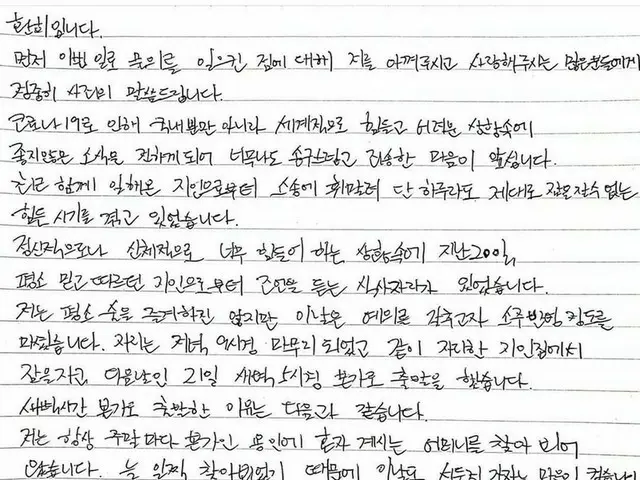 환희입니다.
먼저 이번 일로 물의를 일으킨 점에 대해 저를 아껴주시고 사랑해주시는 많은분들에게
정중히 사과의 말씀드립니다.
코로나19로 인해 국내뿐만 아니라 세계적으로 힘들고 어려운 상황속에
좋지않은 소식을 전하게 되어 너무나도 송구스럽고 죄송한 마음이 앞섭니다.
최근 함께 일해온 지인으로부터 소송에 휘말려 단 하루라도 제대로 잠을잘수 없는
힘든 시기를 겪고 있었습니다.
정신적으로나 신체적으로 너무 힘들어 하는 상황속에 지난20일,
평소 믿고 따르던 지인으로부터 조언을 듣는 식사자리가 있었습니다.
저는 평소 술을 즐겨하진 않지만 이날은 예의를 갖추고자 소주반병 정도를
마셨습니다. 자리는 저녁 9시경 마무리 되었고 같이 자리한 지인집에서
잠을자고 다음날인 21일 새벽 5시경 본가로 출발을 했습니다.
새벽시간 본가로 출발한 이유는 다음과 같습니다.
저는 항상 주말마다 본가인 용인에 혼자 계시는 어머니를 찾아 뵈어
왔습니다. 늘 일찍 찾아뵈었기 때문에 이날도 서둘러 가자는 마음이 컸습니다